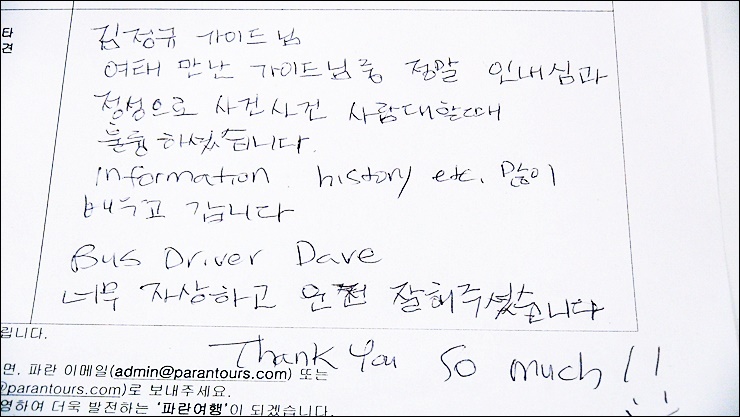 타
견
김정규 가이드님
여태 만난 가이드님중 정말 인내심과
정성으로 사건사건 사람대할때
훌륭하셨습니다.
information. history etc. 많이
배우고 갑니다
Bus Driver Dave
너무 자상하고 운전 잘해주셨습니다
립니다.
Thank you so much!!
면. 파란 이메일(admin@parantours.com) 또는
@parantours.com)로 보내주세요.
영하여 더욱 발전하는 '파란여행'이 되겠습니다.